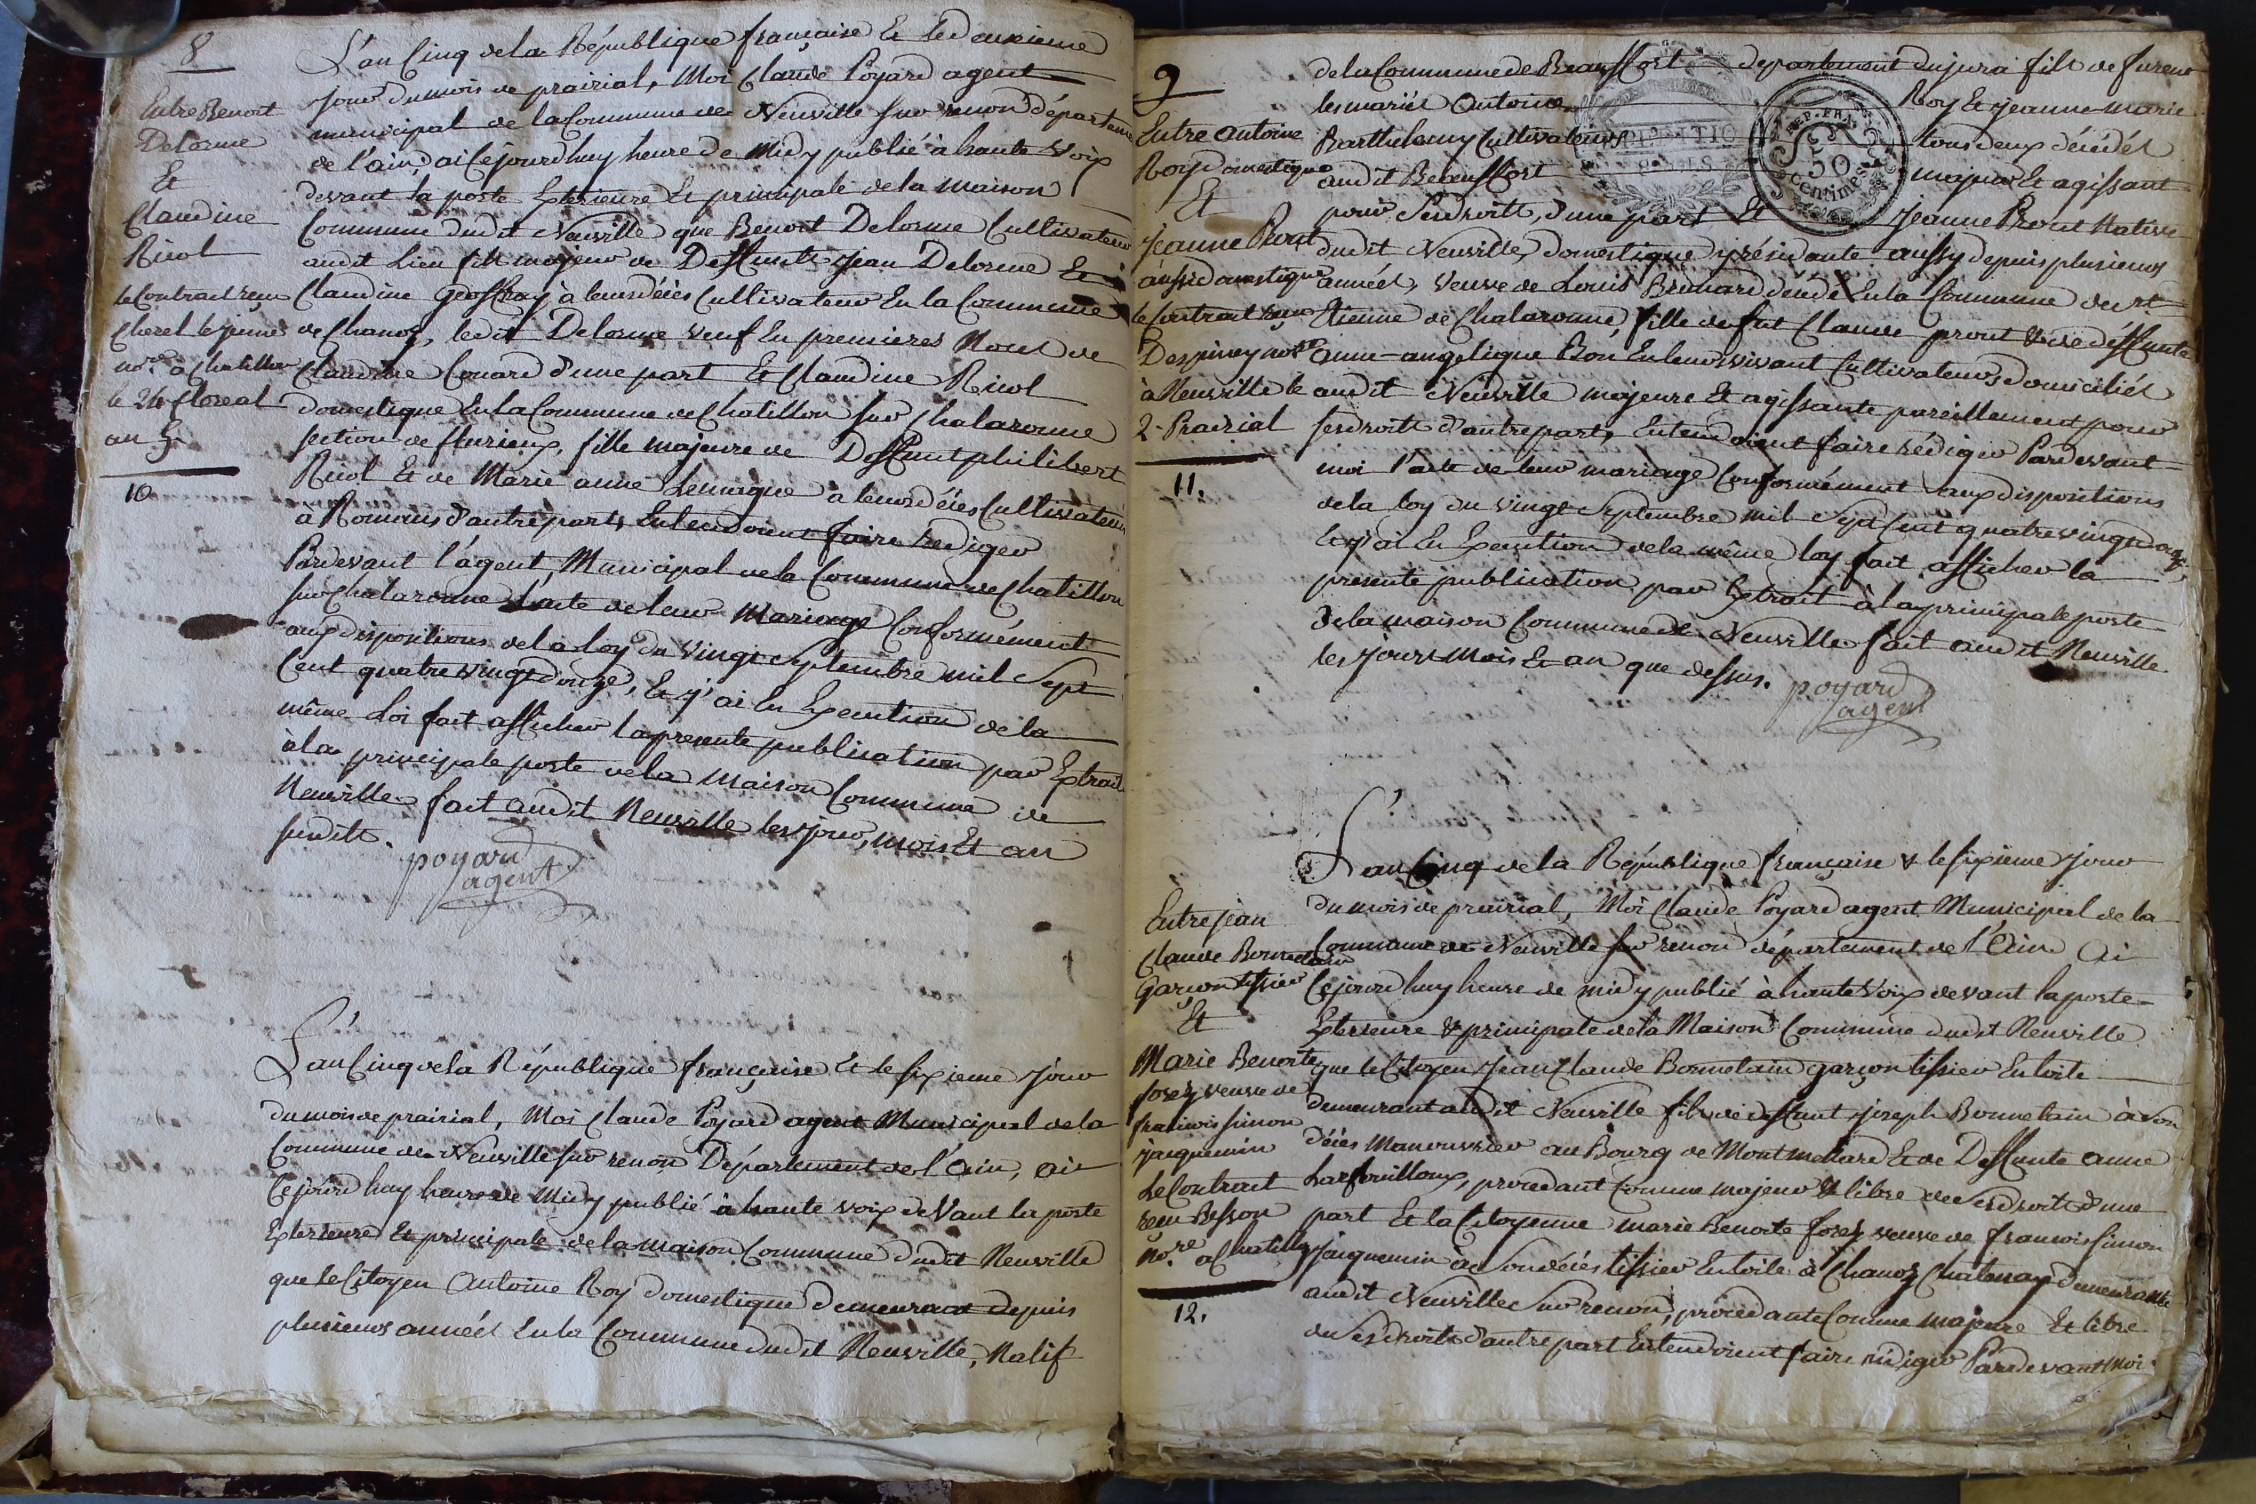 8
Entre Benoit
Delorme
Et
Claudine
Ricol
le Contrat reçu
Cherel le jeune
nore. à Chatillon
le 24 floreal
an 5.
10
L'an Cinq de la République française Et le deuxieme
jour du mois de prairial, Moi Claude Poyard agent
municipal de la Commune de Neuville sur renon départeme
de l'ain, ai Cejourdhuy heure de Midy publié à haute voix
devant la porte Exterieure Et principale de la maison
Commune dudit Neuville que Benoit Delorme Cultivateur
audit Lieu fils majeur de Deffunts Jean Delorme Et
Claudine Geoffray à leurs déces Cultivateur En la Commune
de Chanoz, ledit Delorme veuf En premieres Noces de
Claudine Couard d'une part Et Claudine Ricol
domestique En la Commune de Chatillon sur Chalaronne
section de fleurieux, fille majeure de Deffunt philibert
Ricol Et de Marie anne a leurs déces Cultivateurs
à Romans d'autre part, Entendoient faire rediger
Pardevant l'agent Municipal de la Commune de Chatillon
sur Chalaronne l'acte de leur Mariage Conformément
aux dispositions de la Loy du Vingt septembre mil Sept
Cent quatre vingt douze, Et j'ai En Execution de la
même Loi fait afficher la presente publication par Extrait
à la principale porte de la Maison Commune de
Neuville fait audit Neuville les jour, mois Et an
susdits.
poyard
agent
L'an Cinq de la République française Et le sixieme jour
du mois de prairial, Moi Claude Poyard agent Municipal de la
Commune de Neuville sur renon Département de l'Ain, ai
Cejourd'huy heure de Midy publié à haute voix deVant la porte
Exterieure Et principale de la maison Commune dudit Neuville
que le Citoyen Antoine Roy domestique demeurant depuis
plusieurs années En la Commune dudit Neuville, Natif
9
Entre antoine
Roy domestique
Et
Jeanne Prout
aussi domestique
le Contrat reçu
Despiney nore
à Neuville le
2 Prairial
11.
de la Commune de Beauffort departement du jura fils de furent
les mariés Antoine Roy Et jeanne-marie
Barthelemy Cultivateurs tous deux décédés
audit Beauffort majeur Et agissant
pour ses droits, d'une part Et Jeanne Prout Native
dudit Neuville, domestique y résidante aussy depuis plusieurs
années, veuve de Louis Brouard décédé En la Commune de st
Etienne de Chalaronne, fille de fut Claude prout & de déffunte
anne-angelique Bon En leurs vivant Cultivateurs domiciliés
audit Neuville majeure Et agissante pareillement pour
ses droits d'autre part, Entendoient faire rédiger Pardevant
moi l'acte de leur mariage Conformément aux dispositions
de la loy du vingt Septembre mil Sept Cent quatre vingt douze,
Et j'ai En Execution de la même loy fait afficher la
presente publication par Extrait à la principale porte
de la maison Commune de Neuville fait audit Neuville
les jours Mois Et an que dessus.
poyard
agent
REP. FRA.
50
centimes
Entre jean
Claude Bonnetain
Garçon tissier
Et
Marie Benoite
forez veuve de
francois simon
jacquemin
Le Contrat
reçu Besson
nore. a Chatillon
12.
L'an Cinq de la République française & le sixieme Jour
du mois de prairial, Moi Claude Poyard agent Municipal de la
Commune de Neuville sur renon département de l'Ain ai
Cejourdhuy heure de midy publié à haute voix devant la porte
Exterieure & principale de la Maison Commune dudit Neuville
que le Citoyen Jean Claude Bonnetain garçon tissier En toile
demeurant audit Neuville fils de deffunt joseph Bonnetain à son
déces Manouvrier au Bourg de Montmellard Et de Deffunte anne
Larfouilloux, procedant Comme majeur & libre de ses droits d'une
part Et la Citoyenne marie Benoite forez veuve de francois Simon
jacquemin à son déces tissier En toile à Chanoz Chatenay demeurante
audit Neuville sur renon, procedante Comme majeure Et libre
de ses droits d'autre part Entendoient faire rédiger Pardevant Moi